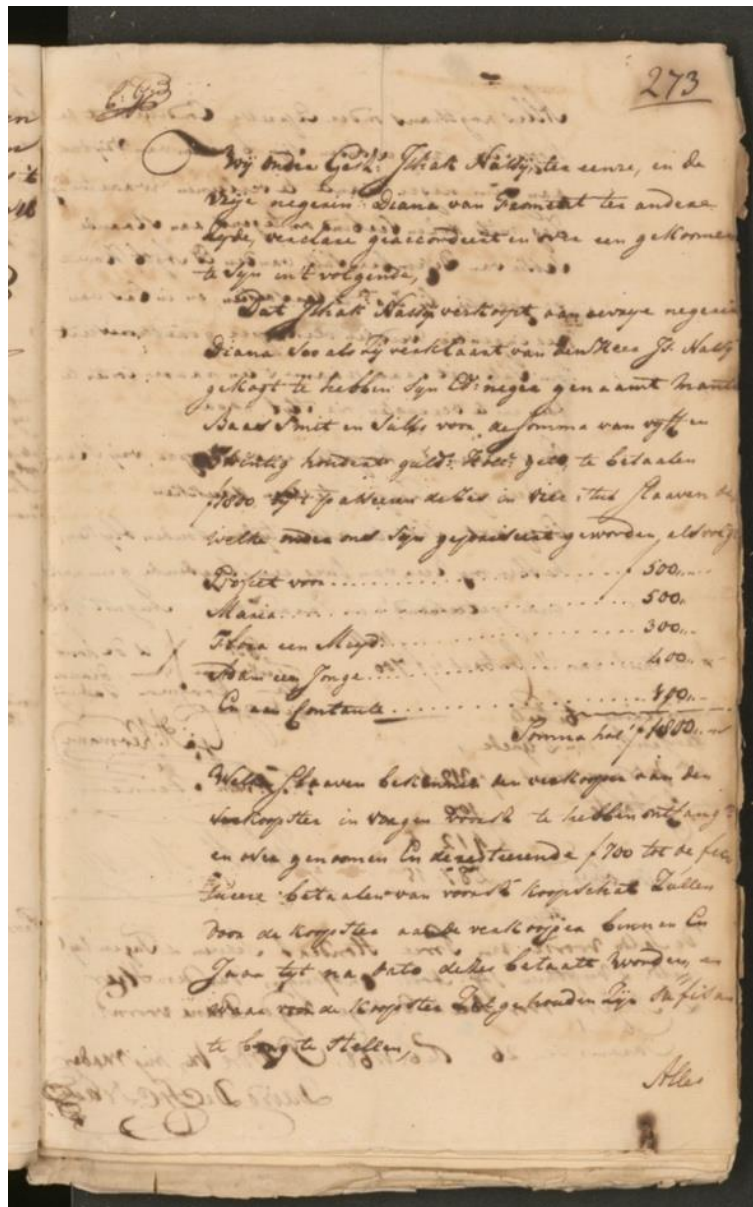 273
Wij onder Gesh: Ishak Nassy, ter eenre, en de
vrije negerin Diana van ter andere
zyde, verclare geaccordeert en over een gekomen
te syn in't volgende,
Dat Ishak Nassy verkoopt aan de vrye negerin
Diana soo als zij verklaart van den Heer Js: Nassy
gekogt te hebben syn Ed: neger genaamt
Baas Smit en sulks voor de somma van vyff en
twintig hondert guld: Holl: gelt, te betaalen
f1800 by't passeeren deses in vier stux slaaven de
welke onder ons syn gepriseert geworden, als volgt
voor 500,,
Maria 500,,
Flora een Meyd 300,,
Adam een Jonge 400,,
En aan Contante 100,,
Somma hol: f 1800,,
Welke Slaaven bekenne den verkooper aan den
verkoopster in voegen voorsz te hebben ontfang
en over genoomen En de resteerende f700 tot de
betaalen van voorsz koopschat zullen
door de koopster aan de verkooper binnen En
Jaar tyt na dato deses betaalt worden, en
waar voor de koopster zal gehouden zijn
te borg te stellen,
Alles